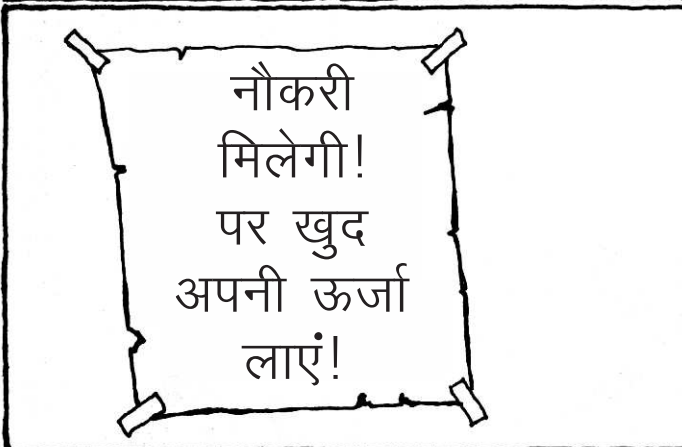 नौकरी
मिलेगी!
पर खुद
अपनी ऊर्जा
लाएं!